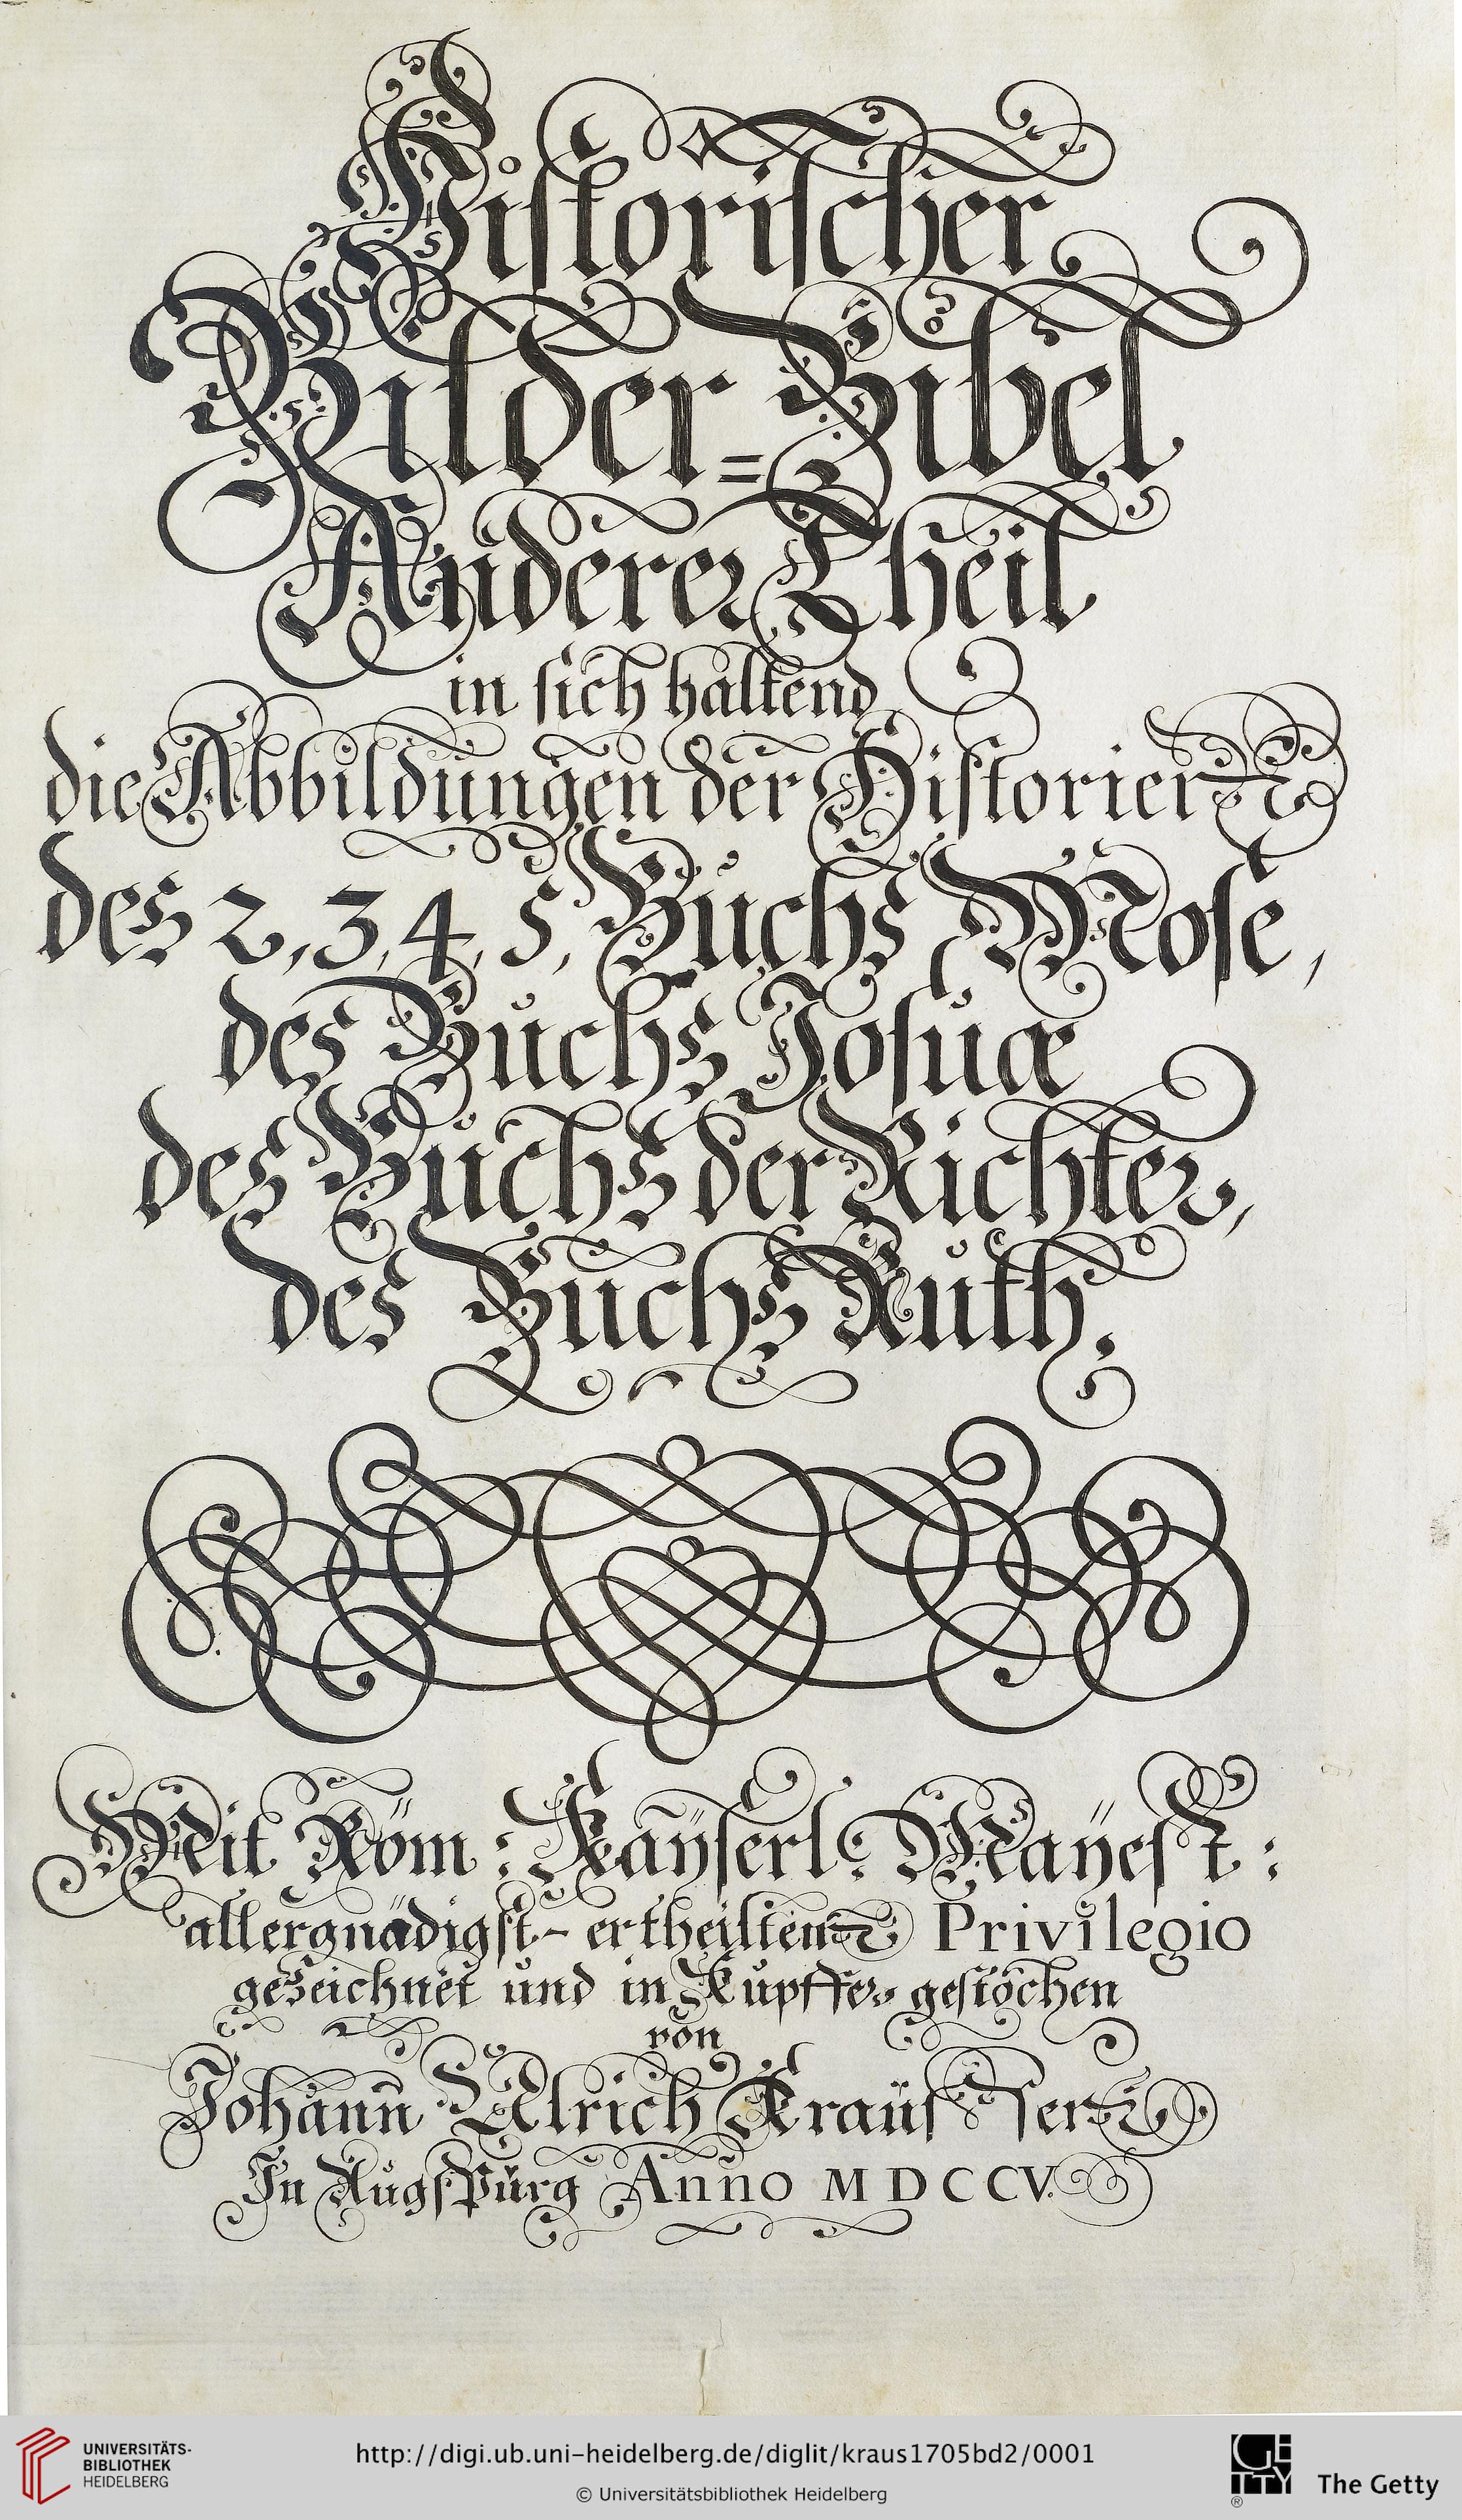 Historischer
Bilder=Bibel
Anderer Theil
in sich haltend
die Abbildungen der Historien
des 2, 3, 4, 5, Buchs Mose,
des Buchs Josuæ
des Buchs der Richter,
des Buchs Ruth.
Mit Röm: Kaÿserl: Maÿest:
allergnädigst-ertheiltem Privilegio
gezeichnet und in Kupffer gestochen
von
Johann Ulrich Krausser
In Augspurg Anno MDCCV.
UNIVERSITÄTS-
BIBLIOTHEK
HEIDELBERG
http://digi.ub.uni-heidelberg.de/diglit/kraus1705bd2/0001
© Universitätsbibliothek Heidelberg
GETTY
®
The Getty